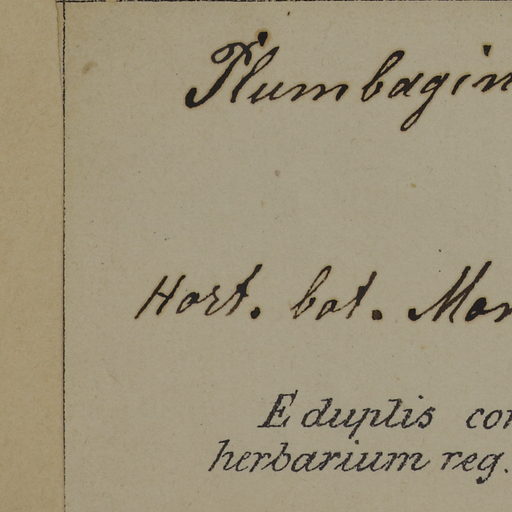 Plumbagin
Hort. bot. Mon
E duplis con
herbarium reg.